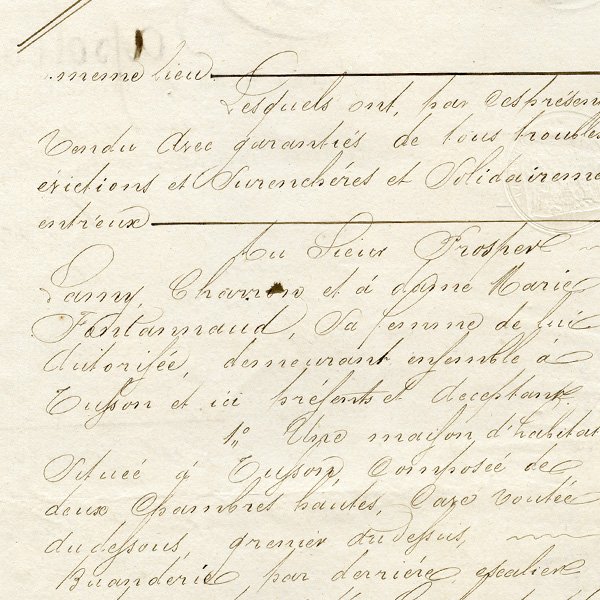 meme lieu
Lesquels ont, par ces présen
Vendu avec garantiés de tous troubles
évictions et surenchéres et Solidaireme
entr'eux
Au Sieur Prosper
Lamy, Charron et á dame Marie
Fontannaud, sa femme de lui
Autorisée, demeurant ensemble à
Tusson et ici présents et acceptant
1° Une maison d'habitat
Située á Tusson, Composée de
deux Chambres hautes, Cave voutée
audessous, grenier audessus,
Buanderie par derriére, escalier